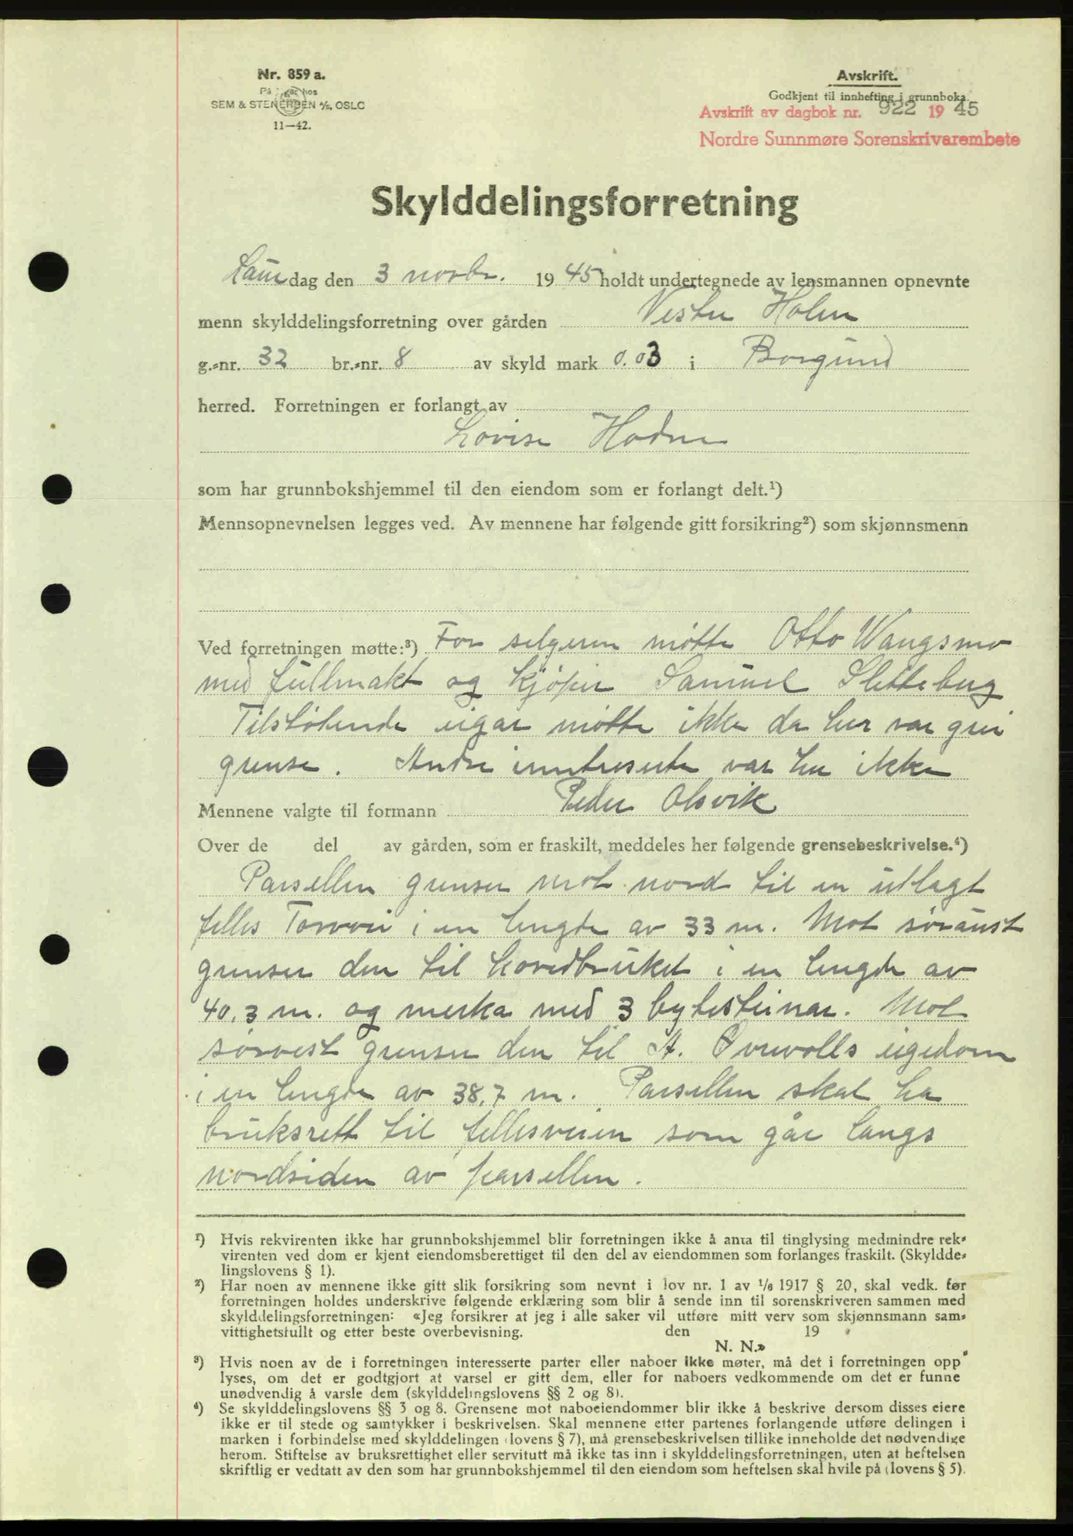 Nr. 859 a.
På hos
SEM & STENERSEN A/S, OSLO
11—42.
Avskrift.
Godkjent til innhefting i grunnboka.
Avskrift av dagbok nr. 922 1945
Nordre Sunnmøre Sorenskrivarembete
Skylddelingsforretning
Laurdag den 3 novbr. 1945 holdt undertegnede av lensmannen opnevnte
menn skylddelingsforretning over gården Vestre Holen
g.-nr. 32 br.-nr. 8 av skyld mark 0.03 i Borgund
herred. Forretningen er forlangt av
Lovise Hodne
som har grunnbokshjemmel til den eiendom som er forlangt delt.¹)
Mennsopnevnelsen legges ved. Av mennene har følgende gitt forsikring²) som skjønnsmenn
Ved forretningen møtte:³) For selgeren møtte Otto Wangsmo
med fullmakt og kjøper Samuel Sletteberg
Tilstøtende eigar møtte ikke da her var grei
grense. Andre interesserte var her ikke
Mennene valgte til formann Peder Olsvik
Over de del av gården, som er fraskilt, meddeles her følgende grensebeskrivelse.⁴)
Parsellen grenser mot nord til en utlagt
felles Torvvei i en lengde av 33 m. Mot søraust
grenser den til hovedbruket i en lengde av
40.3 m. og merka med 3 bytesteinar. Mot
sørvest grenser den til A. Overvolls eigedom
i en lengde av 38,7 m. Parsellen skal ha
bruksrett til fellesveien som går langs
nordsiden av parsellen.
¹) Hvis rekvirenten ikke har grunnbokshjemmel blir forretningen ikke å anta til tinglysing medmindre rek-
virenten ved dom er kjent eiendomsberettiget til den del av eiendommen som forlanges fraskilt. (Skyldde-
lingslovens § 1).
²) Har noen av mennene ikke gitt slik forsikring som nevnt i lov nr. 1 av 1/6 1917 § 20, skal vedk. før
forretningen holdes underskrive følgende erklæring som blir å sende inn til sorenskriveren sammen med
skylddelingsforretningen: «Jeg forsikrer at jeg i alle saker vil utføre mitt verv som skjønnsmann sam-
vittighetsfullt og etter beste overbevisning. den 19 .
N. N.»
³) Hvis noen av de i forretningen interesserte parter eller naboer ikke møter, må det i forretningen opp-
lyses, om det er godtgjort at varsel er gitt dem, eller for naboers vedkommende om det er funne
unødvendig å varsle dem (skylddelingslovens §§ 2 og 8).
⁴) Se skylddelingslovens §§ 3 og 8. Grensene mot naboeiendommer blir ikke å beskrive dersom disses eiere
ikke er til stede og samtykker i beskrivelsen. Skal mennene etter partenes forlangende utføre delingen i
marken i forbindelse med skylddelingen (lovens § 7), må grensebeskrivelsen tillike inneholde det nødvendige
herom. Stiftelse av bruksrettighet eller servitutt må ikke tas inn i skylddelingsforretningen, uten at heftelsen
skriftlig er vedtatt av den som har grunnbokshjemmel til den eiendom som heftelsen skal hvile på (lovens § 5).